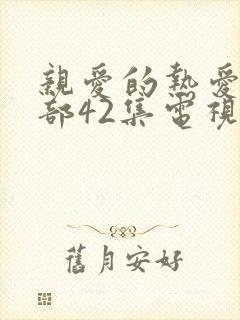 親愛的熱愛
部42集電視
舊月安好